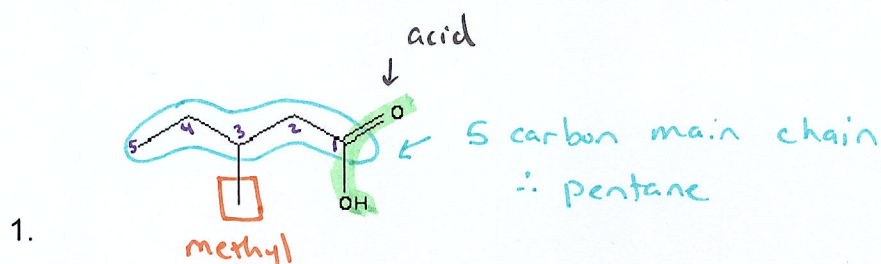 acid
O
5 4 3 2 1
5 carbon main chain
∴ pentane
OH
1.
methyl